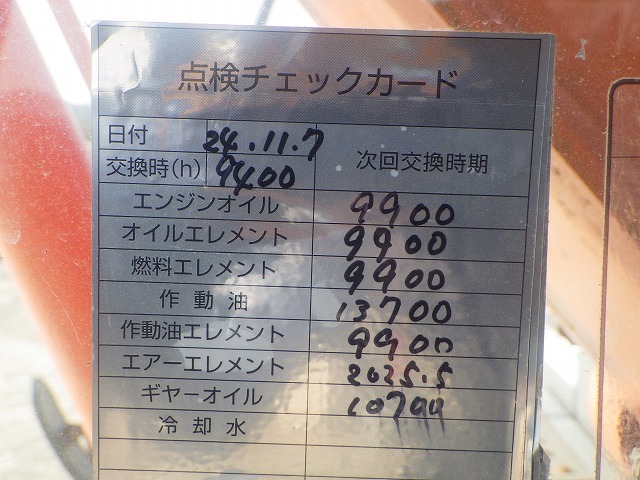 点検チェックカード
日付 24.11.7
交換時(h) 9400 次回交換時期
エンジンオイル 9900
オイルエレメント 9900
燃料エレメント 9900
作動油 13700
作動油エレメント 9900
エアーエレメント 2025.5
ギヤーオイル
冷却水